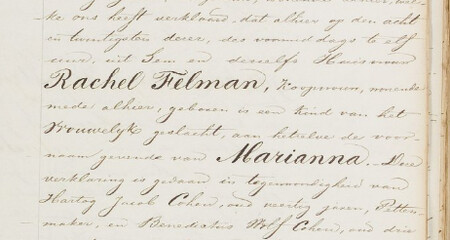 ke ons heeft verklaard, dat alhier op den acht
en twintigsten dezer, des voormiddags te elf
uur, uit hem en deszelfs Huisvrouw
Rachel Felman, Koopvrouw, wonende
mede alhier, geboren is een Kind van het
Vrouwelijk geslacht, aan hetwelke de voor-
naam gevende van Marianna. Deze
verklaring is gedaan in tegenwoordigheid van
Hartog Jacob Cohen, oud veertig jaren, Petten-
maker, en Benedictus Wolf Cohen, oud drie